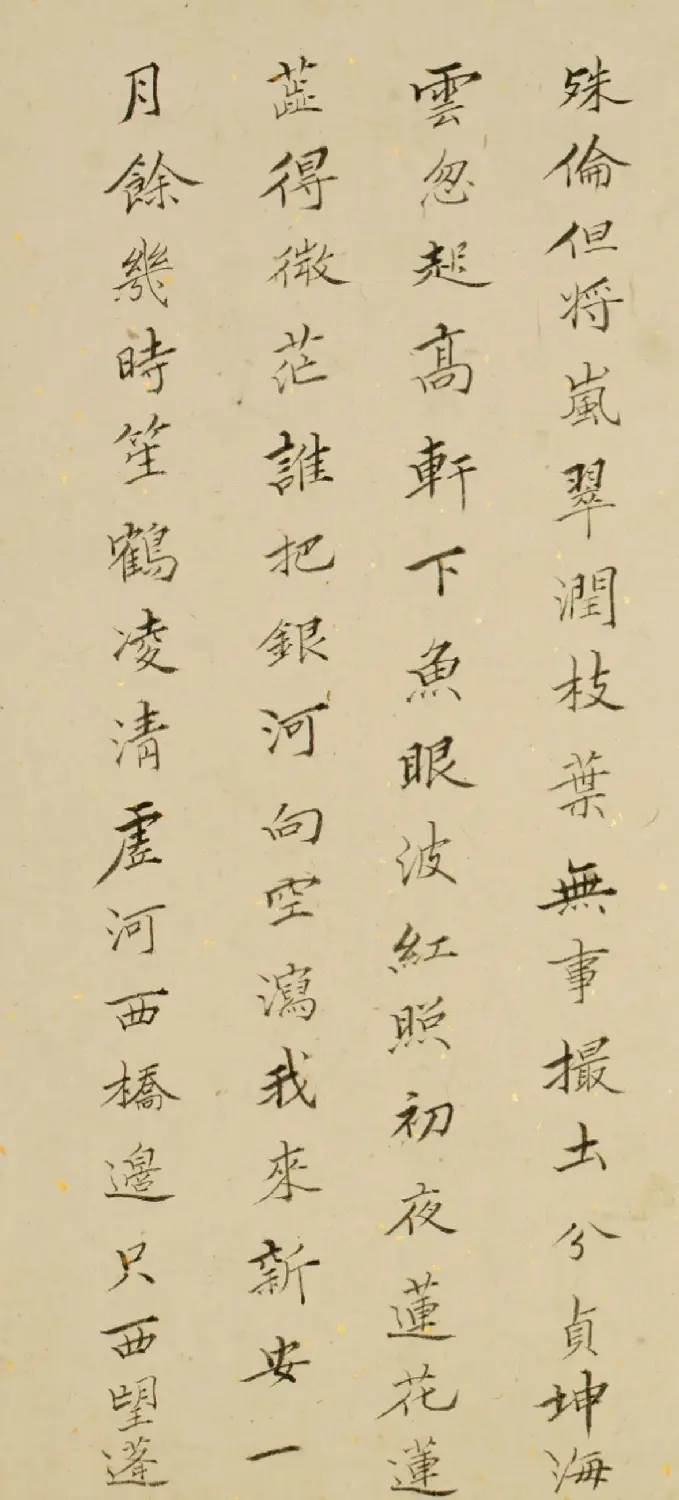 殊倫但将嵐翠潤枝葉無事撮土分貞坤海
雲忽起髙軒下魚眼波紅照初夜蓮花蓮
蕋得微茫誰把銀河向空瀉我來新安一
月餘幾時笙鶴凌清虛河西橋邊只西望蓬